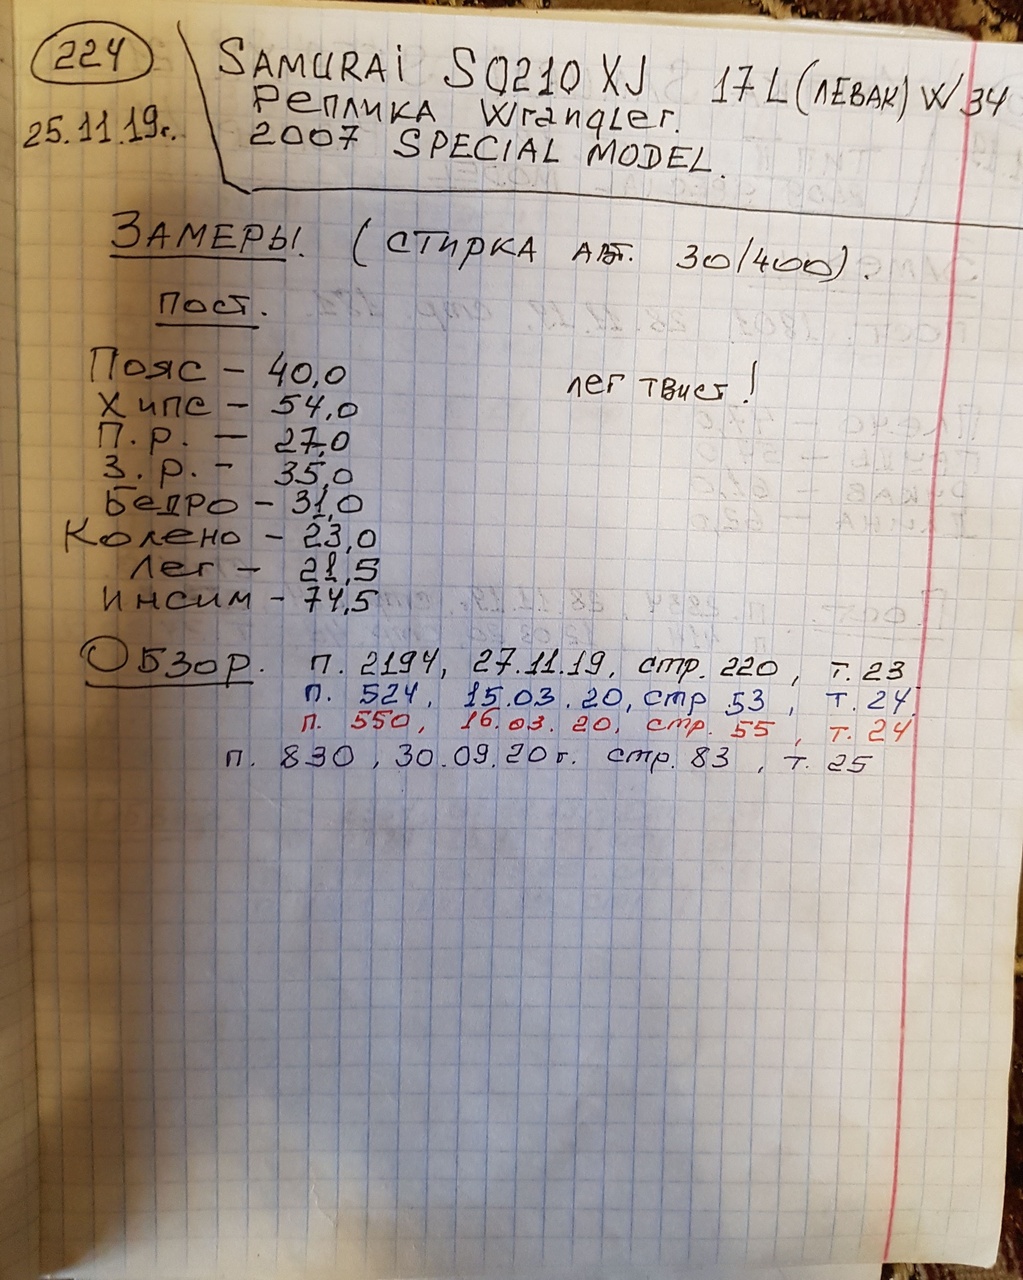 224
25.11.19г.
SAMURAi SO210XJ 17L (ЛЕВАК) W34
РЕПЛИКА Wrangler.
2007 SPECIAL MODEL.
ЗАМЕРЫ. (СТИРКА АВТ. 30/400).
ПОСТ.
ПОЯС - 40,0
ХИПС - 54,0
П.Р. - 27,0
З.Р. - 35,0
БЕДРО - 31,0
КОЛЕНО - 23,0
ЛЕГ - 21,5
ИНСИМ - 74,5
ЛЕГ ТВИСТ!
ОБЗОР. П. 2194, 27.11.19, стр. 220, т. 23
П. 524, 15.03.20, стр 53, т. 24.
П. 550, 16.03.20, стр. 55, т. 24
П. 830, 30.09.20г. стр. 83, т. 25